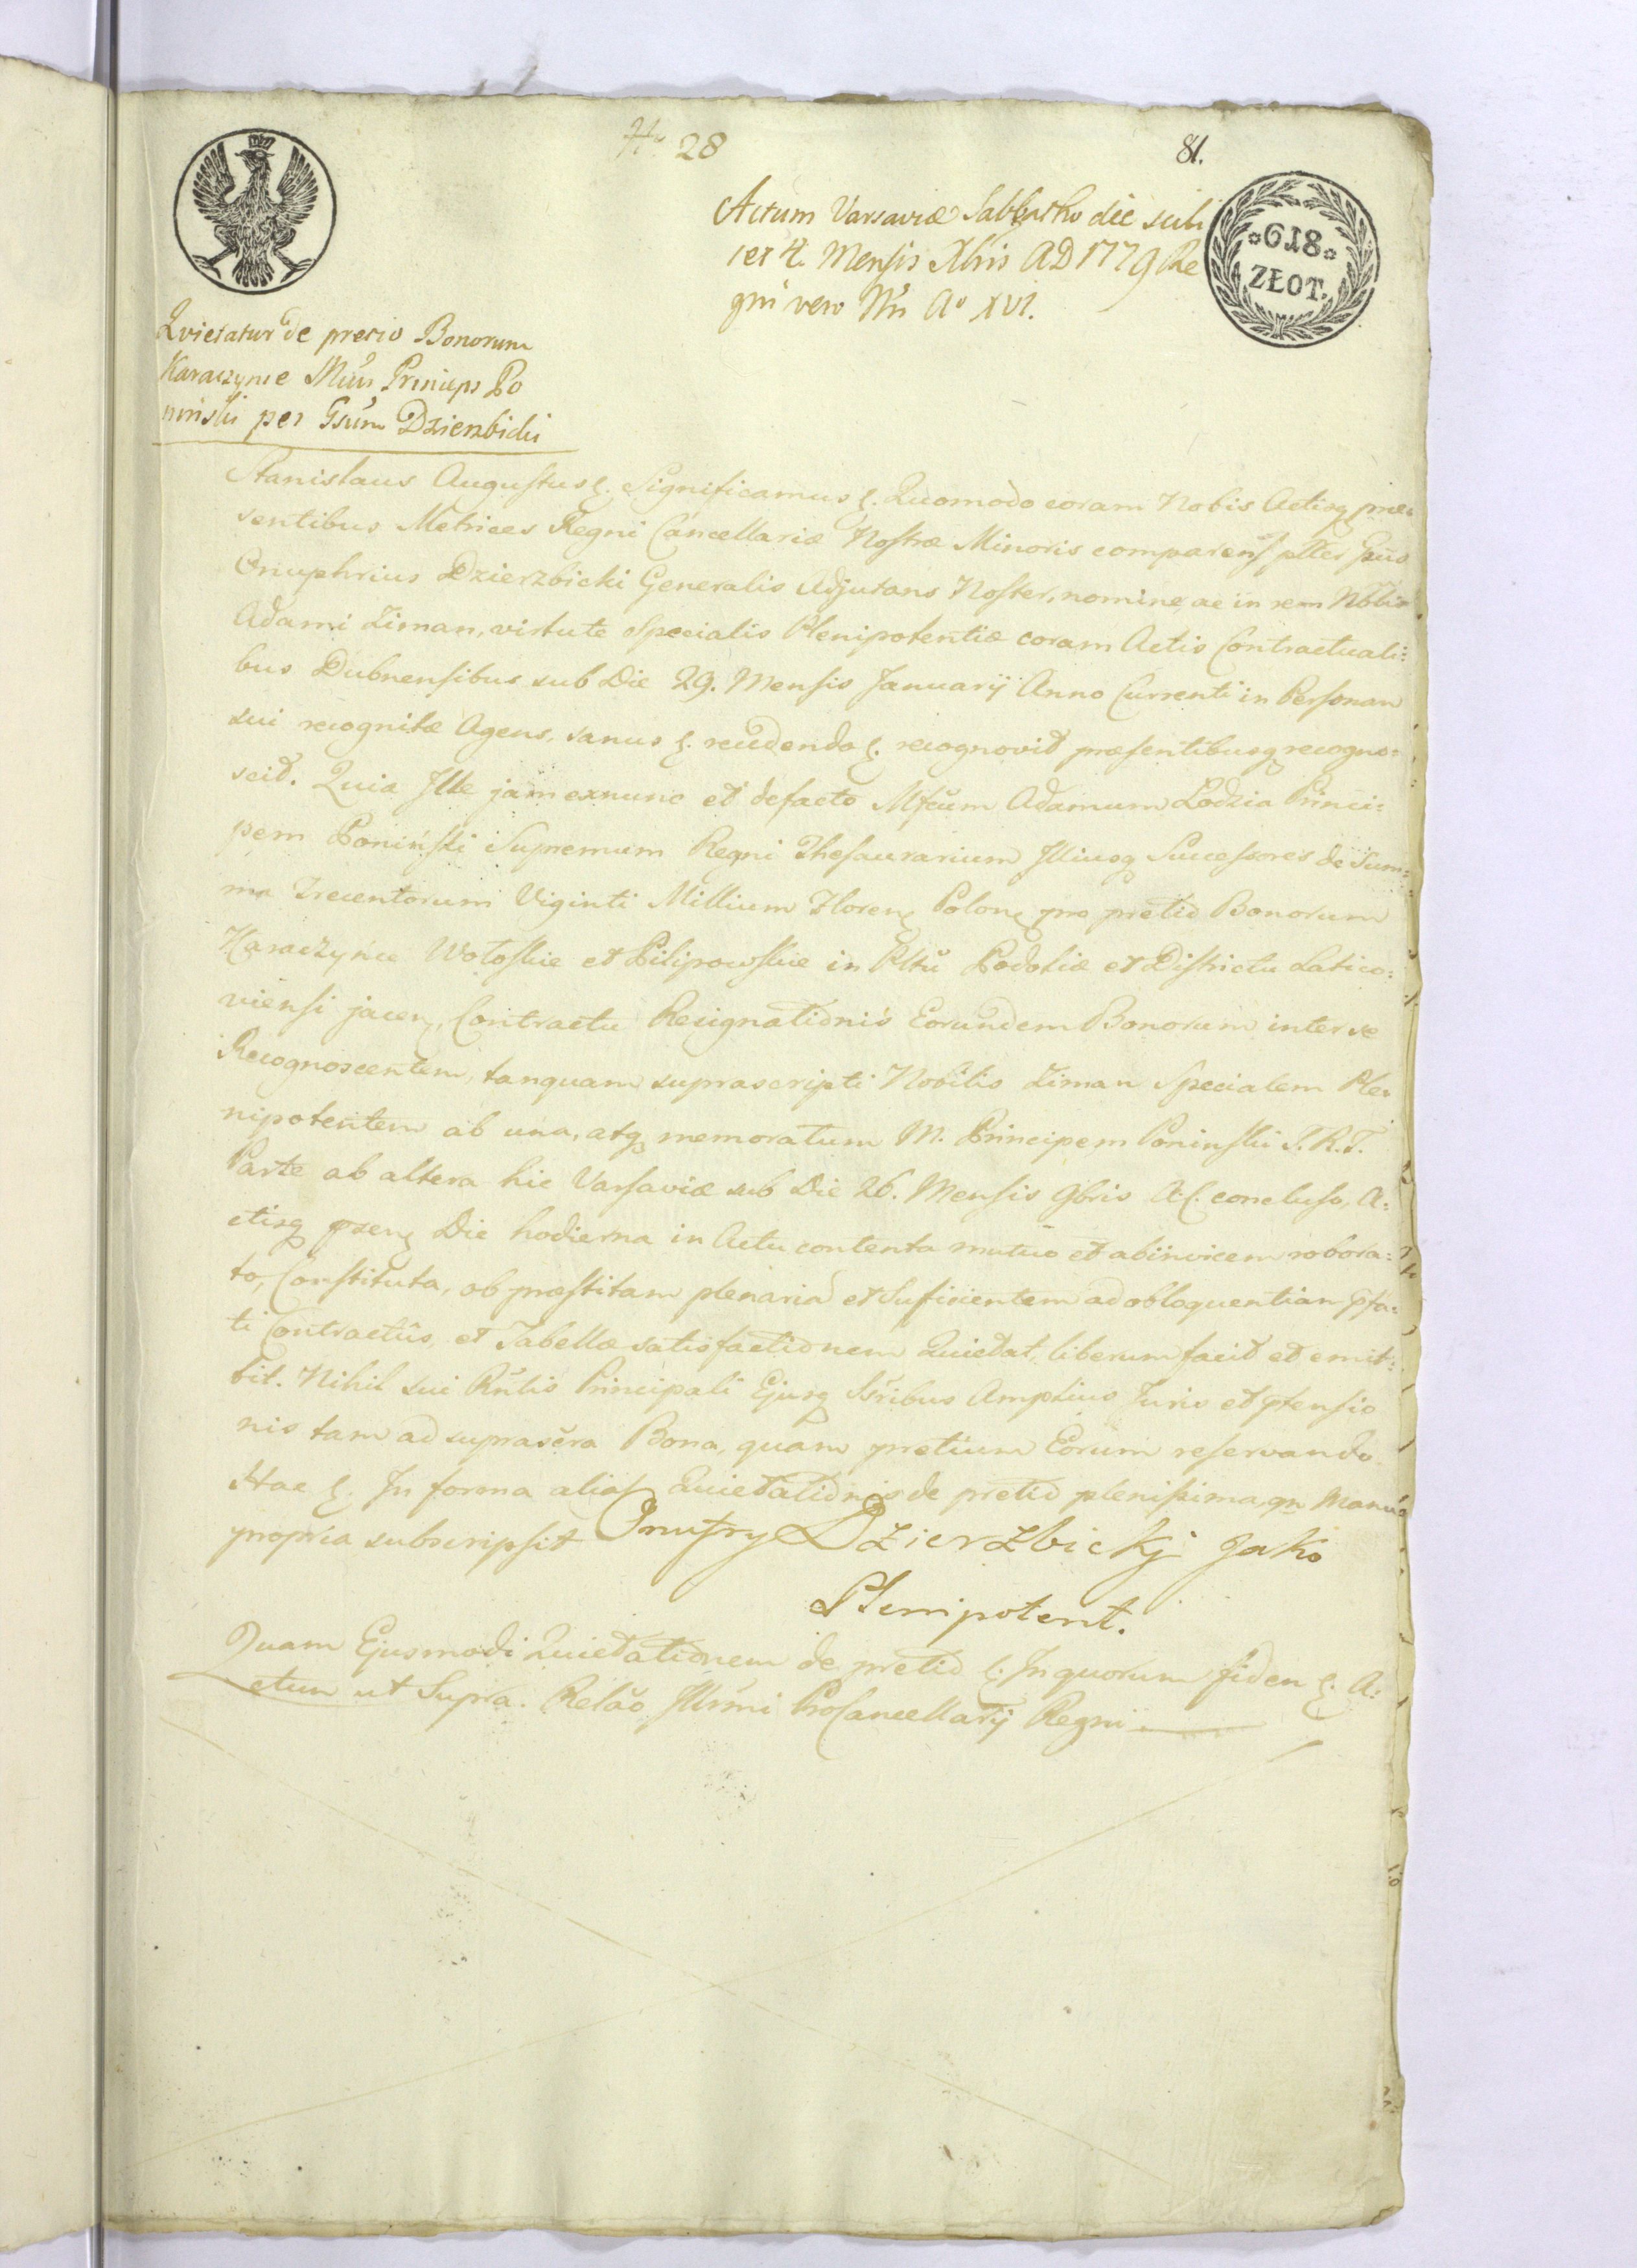 28
81.
Actum Varsaviæ Sabbatho die scili
cet 4. Mensis Xbris AD 1779 Re
gni vero Nri Ao XVI.
618
ZŁOT.
Qvietatur de precio Bonorum
Karaczynce Mcus Princeps Po
ninski per Gsum Dzierzbicki
Stanislaus Augustus &. Significamus &. Quomodo coram Nobis Actisq præ-
sentibus Metrices Regni Cancellariæ Nostræ Minoris comparens pltter Gsus
Onuphrius Dzierzbicki Generalis Adjutans Noster, nomine ac in rem Nblis
Adami Ziman, virtute Specialis Plenipotentiæ coram Actis Contractuali:
bus Dubnensibus sub Die 29. Mensis Januarij Anno Currenti in Personam
sui recognitæ Agens, sanus &. recedendo &. recognovit præsentibusq recogno:
scit. Quia Ille jam exnunc et defacto Mfcum Adamum Lodzia Princi:
pem Poniński Supremum Regni Thesaurarium Illiusq Successores de Sum:
ma Trecentorum Viginti Millium Floren Polon pro pretio Bonorum
Karaczynce Wołoskie et Pilipowskie in Pltu Podoliæ et Districtu Latico:
viensi jacen, Contractu Resignationis Eorundem Bonorum inter se
Recognoscentem, tanquam suprascripti Nobilis Ziman Specialem Ple:
nipotentem ab una, atq memoratum M. Principem Poninski S.R.T.
Parte ab altera hic Varsaviæ sub Die 26. Mensis 9bris A.C. concluso, A:
ctisq psen Die hodierna in Actu contenta mutuo et abinvicem robora:
to, Constituta, ob præstitam plenariã et Suficientem ad obloquentiam pfa:
ti Contractûs, et Tabellæ satisfactionem Quietat, liberum facit et emit:
tit. Nihil sui Rntis Principali Ejusq Ssribus Amplius Juris et ptensio
nis tam ad suprascra Bona, quam pretium Eorum reservando.
Hac &. In forma alias Quietationis de pretio plenissima, qn Manu
propria subscripsit Onufry Dzierzbickj Jako
Plenipotent.
Quam Ejusmodi Quietationem de pretio &. In quorum fidem &. A:
ctum ut Supra. Relão Illrmi ProCancellarij Regni